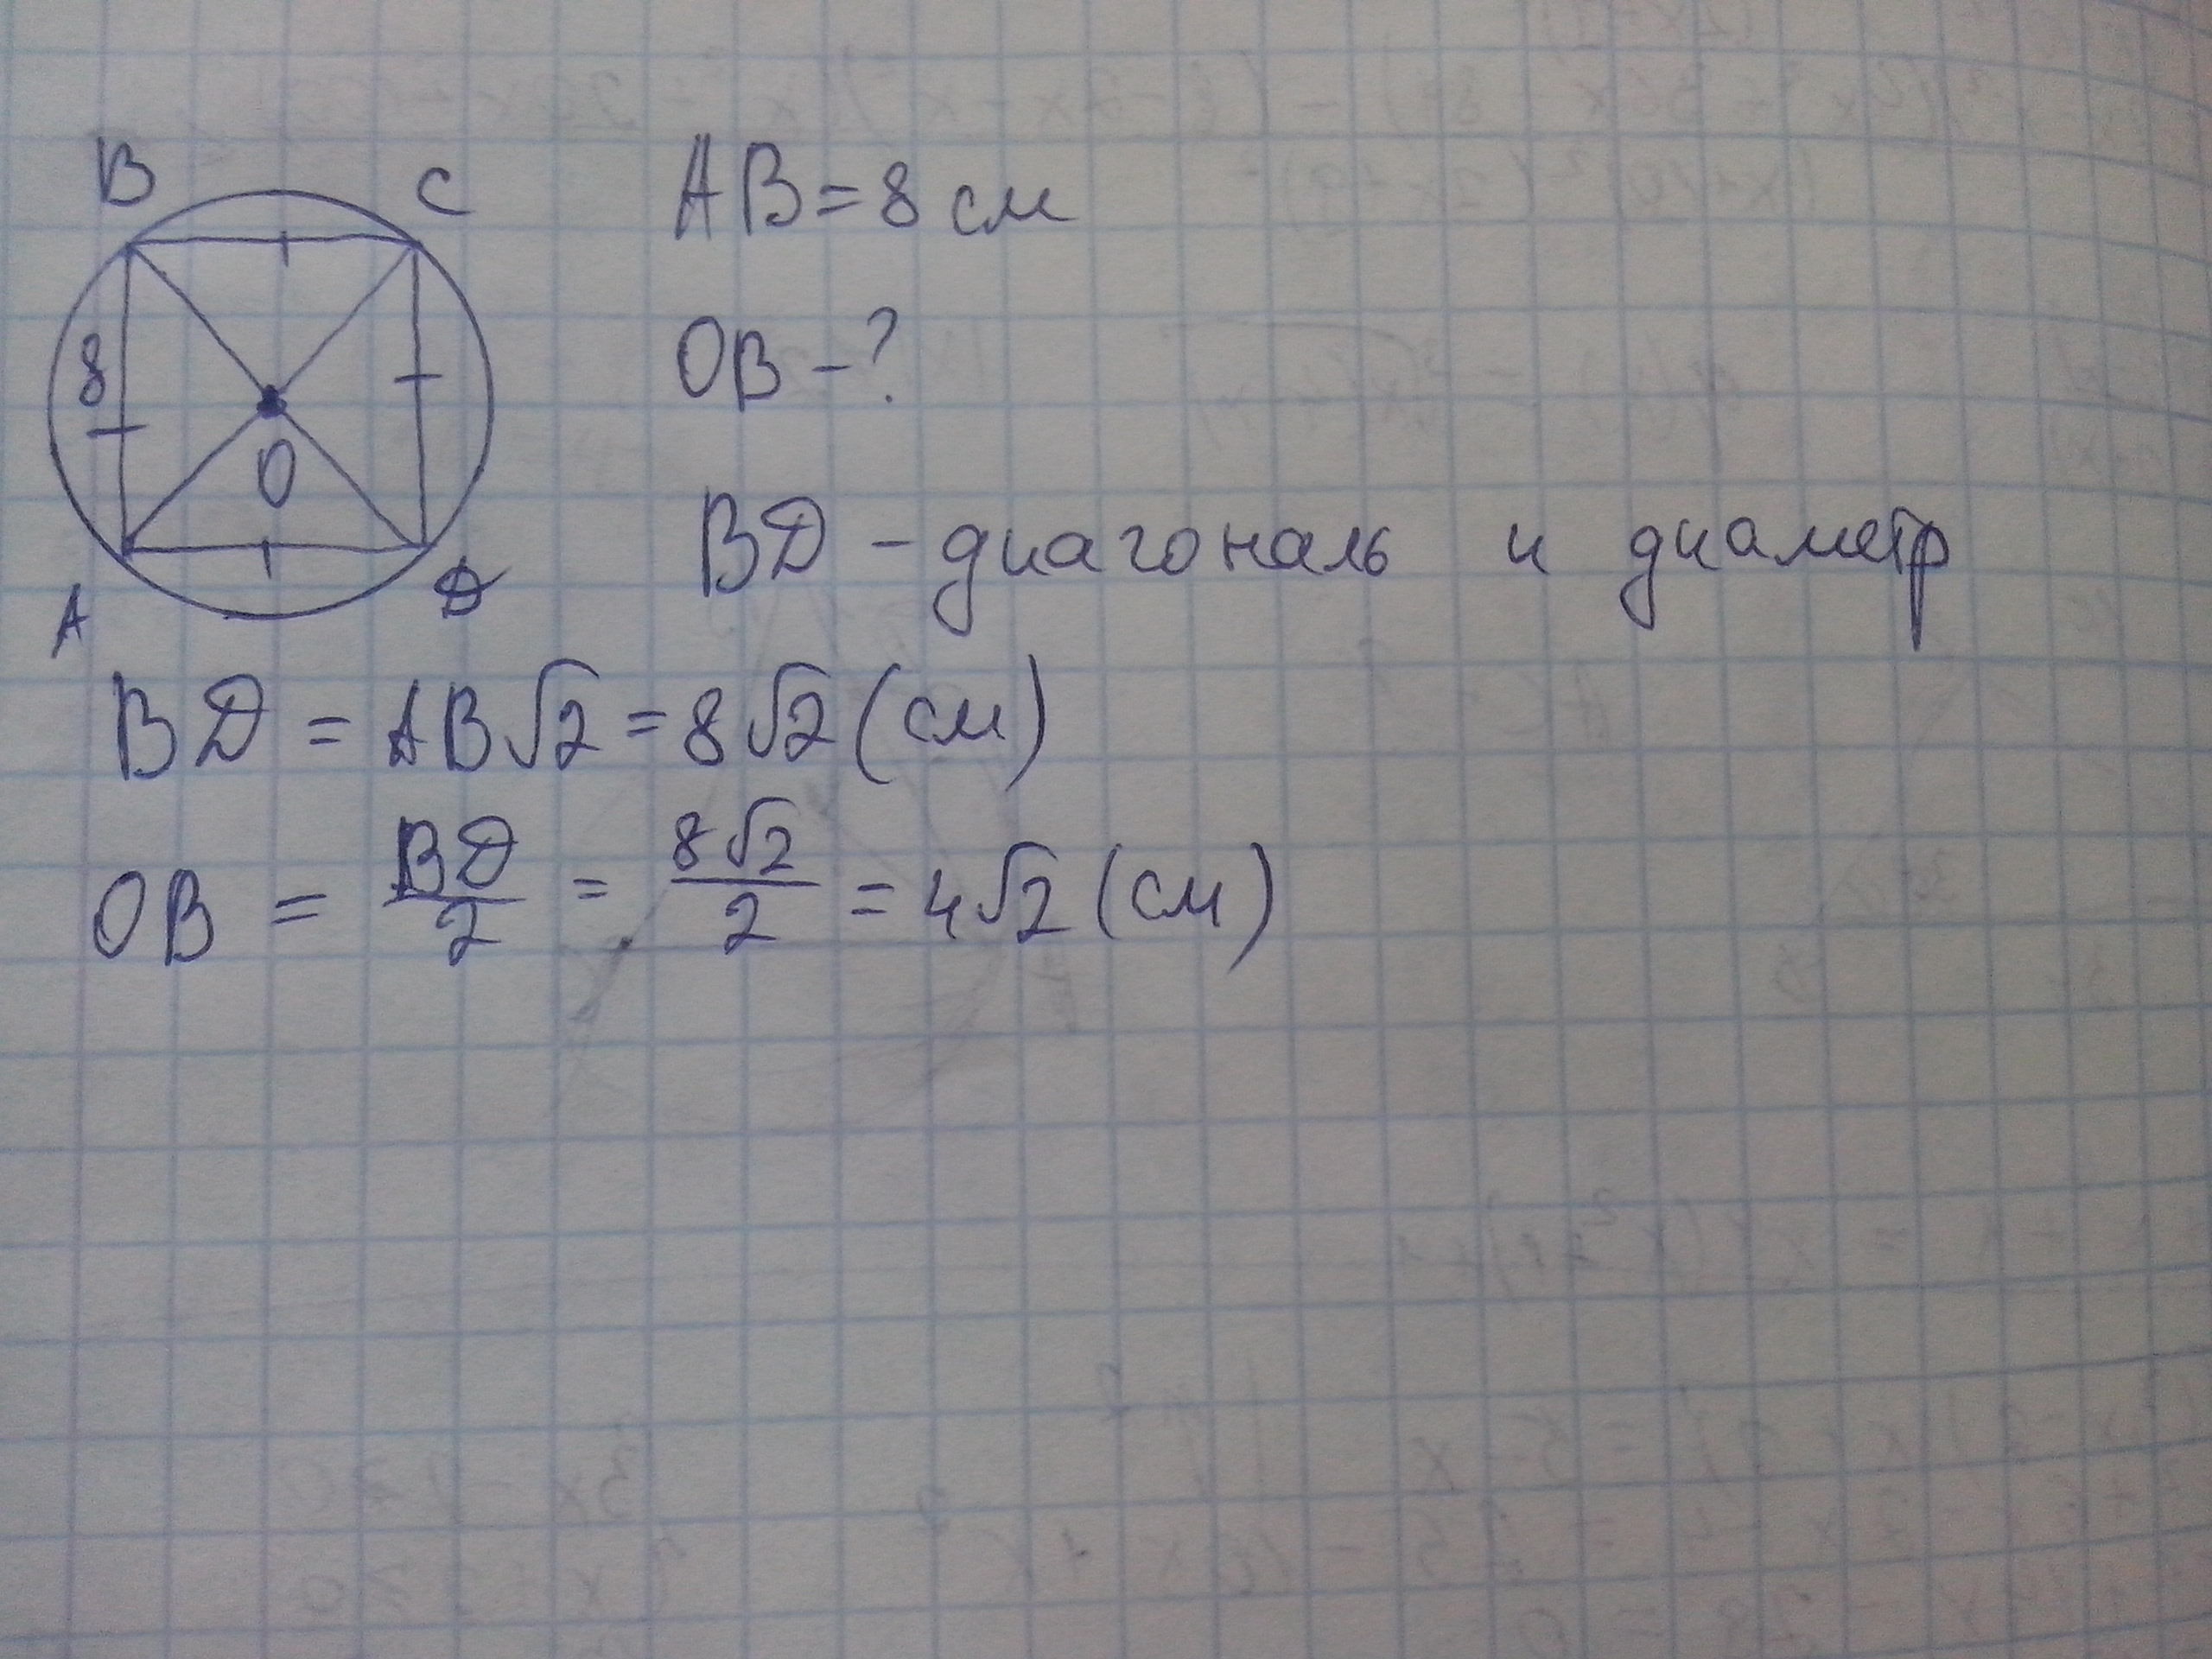 B C
8
O
A D
AB = 8 см
OB - ?
BD - диагональ и диаметр
BD = AB√2 = 8√2 (см)
OB = BD/2 = 8√2/2 = 4√2 (см)